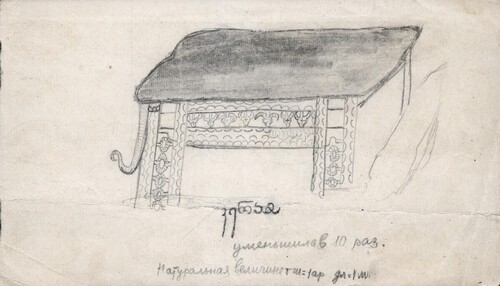 уменьшила в 10 раз.
Натуральная величина ш=1ар дл=1м.